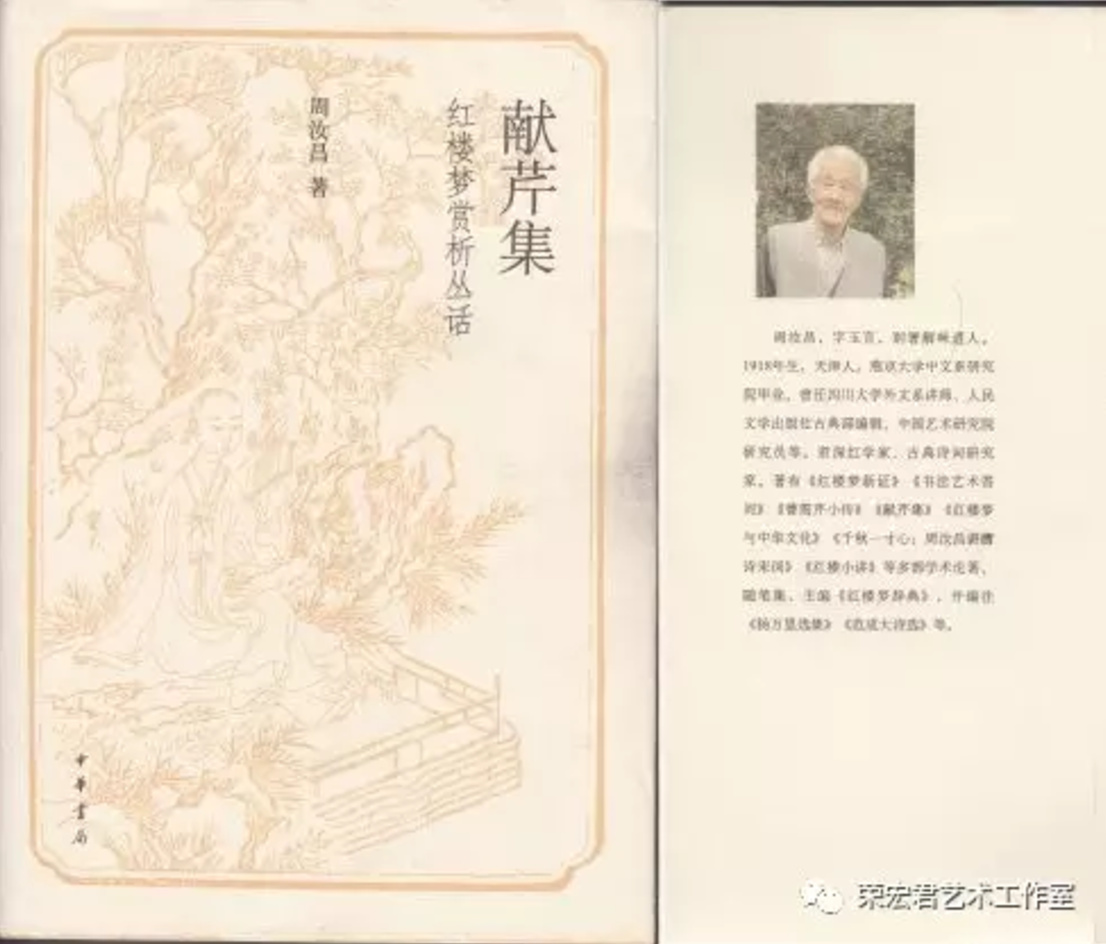 献芹集
红楼梦赏析丛话
周汝昌 著
中华書局
周汝昌，字玉言，别署解味道人。
1918年生，天津人。燕京大学中文系研究
院毕业。曾任四川大学外文系讲师、人民
文学出版社古典部编辑、中国艺术研究院
研究员等。资深红学家、古典诗词研究
家。著有《红楼梦新证》《书法艺术答
问》《曹雪芹小传》《献芹集》《红楼梦
与中华文化》《千秋一寸心：周汝昌讲唐
诗宋词》《红楼小讲》等多部学术论著、
随笔集，主编《红楼梦辞典》，并编注
《杨万里选集》《范成大诗选》等。
荣宏君艺术工作室